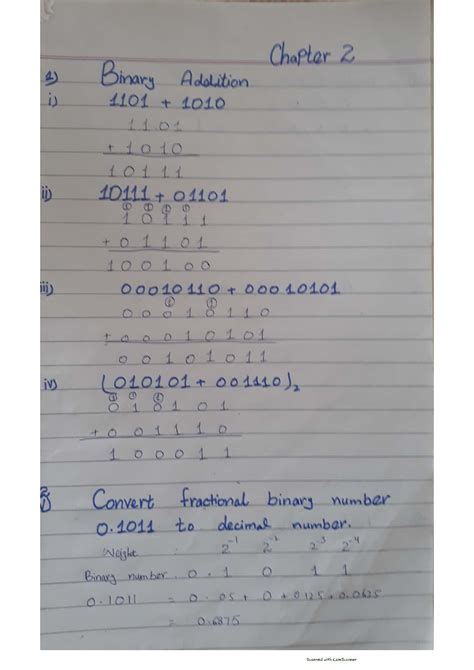 Chapter 2
1) Binary Addition
i) 1101 + 1010
1101
+ 1010
10111
ii) 10111 + 01101
1 1 1 1
1 0 1 1 1
+ 0 1 1 0 1
1 0 0 1 0 0
iii) 00010110 + 00010101
1 1
0 0 0 1 0 1 1 0
+ 0 0 0 1 0 1 0 1
0 0 1 0 1 0 1 1
iv) (010101 + 001110)₂
1 1 1
0 1 0 1 0 1
+ 0 0 1 1 1 0
1 0 0 0 1 1
2)
i) Convert fractional binary number
0.1011 to decimal number.
Weight : 2⁻¹ 2⁻² 2⁻³ 2⁻⁴
Binary number 0 . 1 0 1 1
0.1011 = 0.05 + 0 + 0.125 + 0.0625
= 0.6875
Scanned with CamScanner